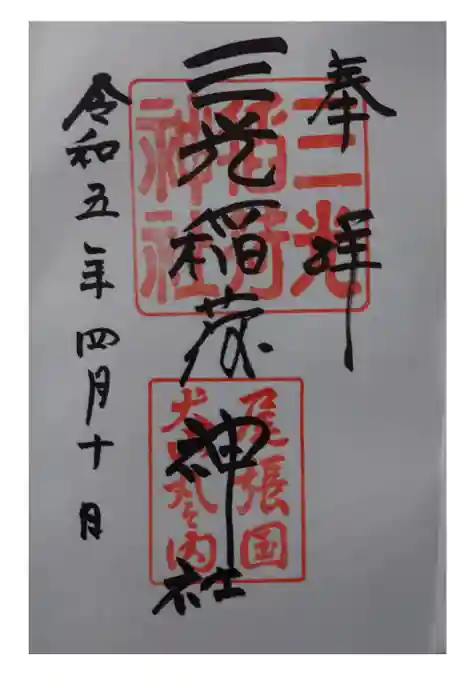 奉拝
三光稲荷神社
令和五年四月十日
三光
稲荷
神社
尾張国
犬山丸之内